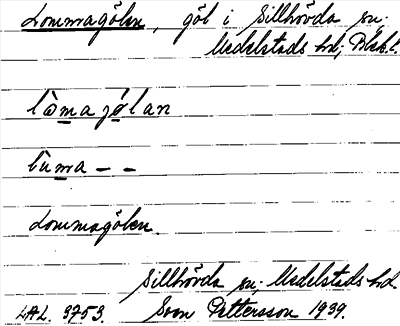 Lommagölen, göl i Sillhövda sn;
Medelstads hd; Blek.l.
lòma jö́lan
lùma – –
Lommagölen.
Sillhövda sn; Medelstads hd.
LAL. 3753. Sven Pettersson 1939.